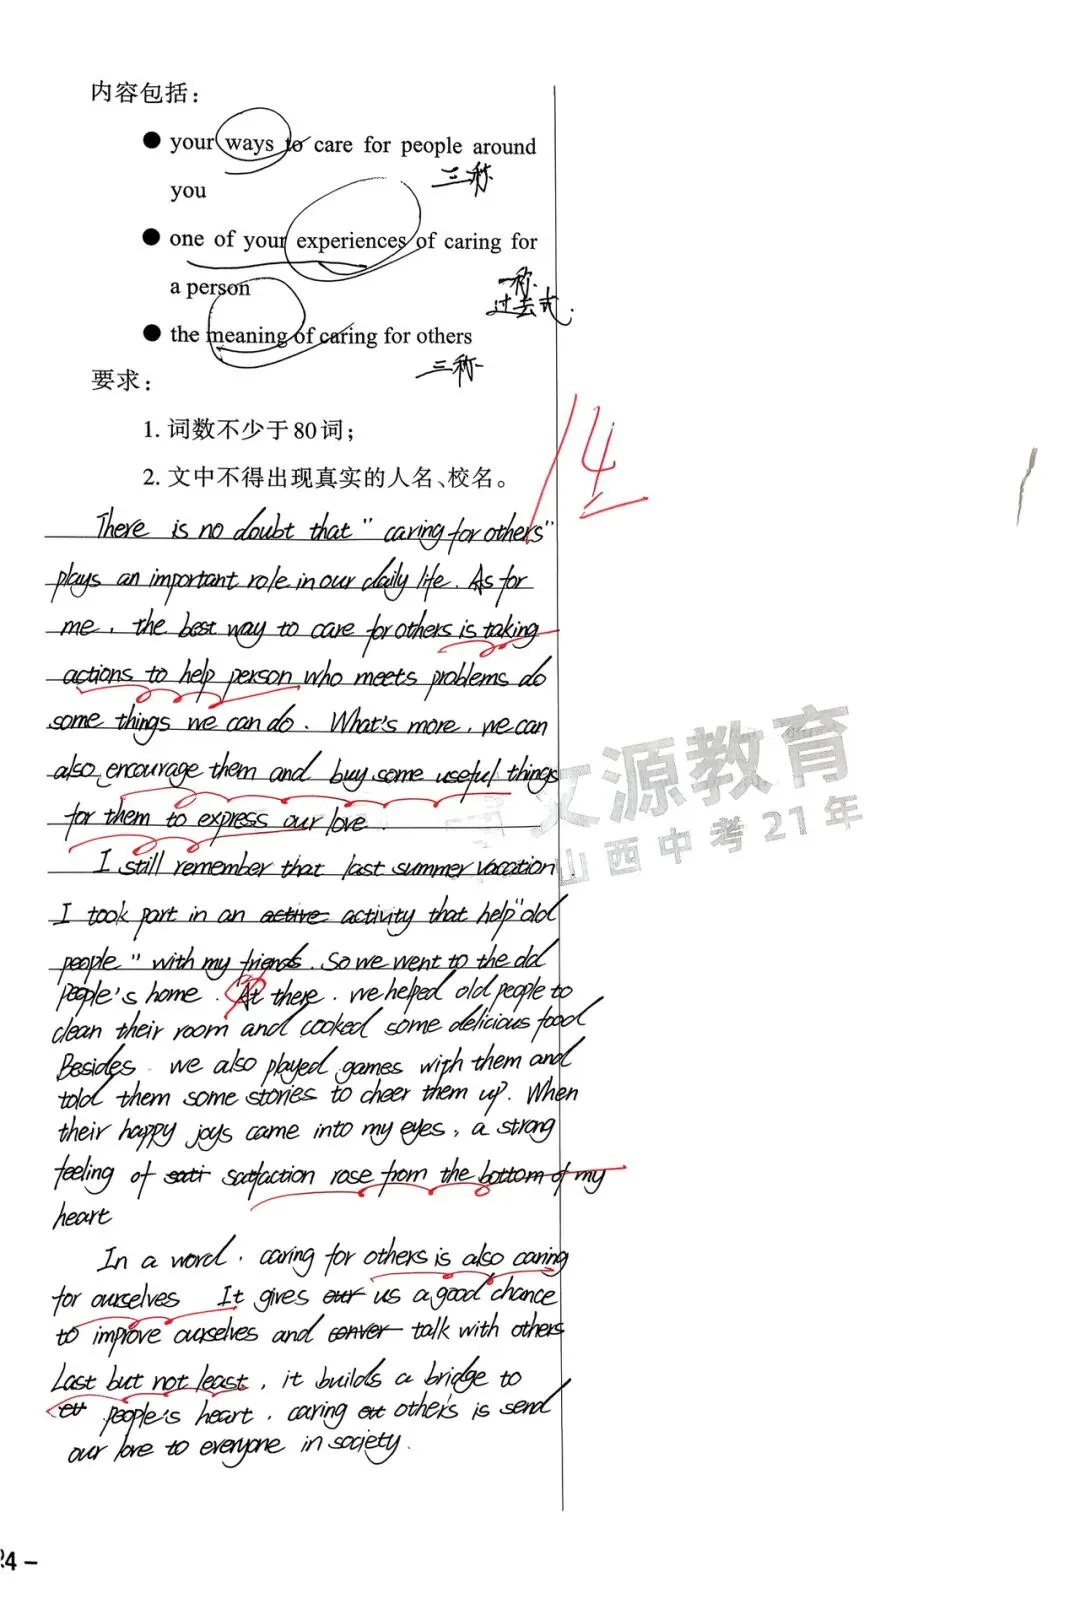 内容包括：
● your ways to care for people around
you
三称
● one of your experiences of caring for
a person
一称
过去式.
● the meaning of caring for others
三称
要求：
1. 词数不少于80词；
2. 文中不得出现真实的人名、校名。
14
There is no doubt that "caring for others"
plays an important role in our daily life. As for
me, the best way to care for others is taking
actions to help person who meets problems do
some things we can do. What's more, we can
also encourage them and buy some useful things
for them to express our love.
I still remember that last summer vacation
I took part in an active activity that help "old
people" with my friends. So we went to the old
people's home. At there, we helped old people to
clean their room and cooked some delicious food
Besides, we also played games with them and
told them some stories to cheer them up. When
their happy joys came into my eyes, a strong
feeling of sati satfaction rose from the bottom of my
heart
In a word, caring for others is also caring
for ourselves It gives our us a good chance
to improve ourselves and conver talk with others
Last but not least, it builds a bridge to
people's heart, caring other's is send
our love to everyone in society.
文源教育
山西中考21年
24 –